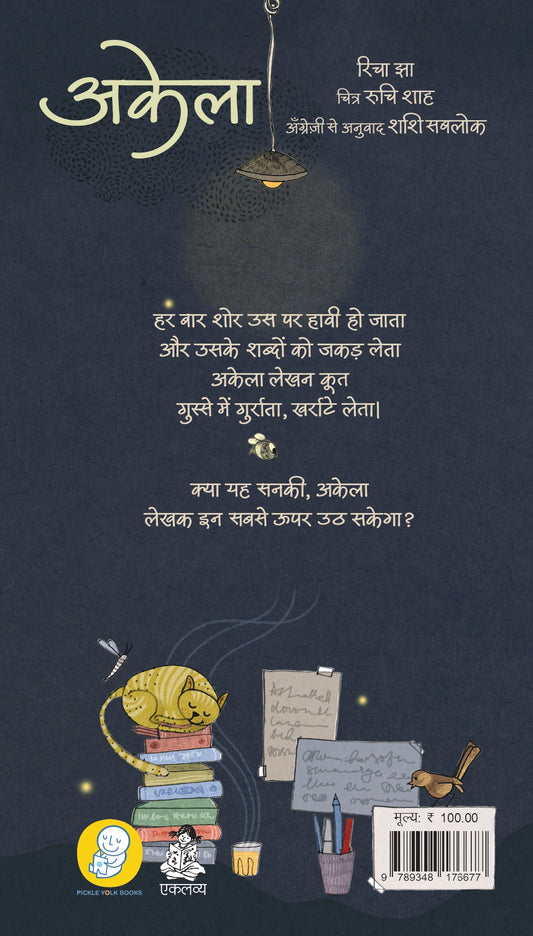 अकेला
रिचा झा
चित्र रुचि शाह
अँग्रेजी से अनुवाद शशि सबलोक
हर बार शोर उस पर हावी हो जाता
और उसके शब्दों को जकड़ लेता
अकेला लेखन कूत
गुस्से में गुर्राता, खर्राटे लेता|
क्या यह सनकी, अकेला
लेखक इन सबसे ऊपर उठ सकेगा?
PICKLE YOLK BOOKS
एकलव्य
मूल्य: ₹ 100.00
9 789348 176677